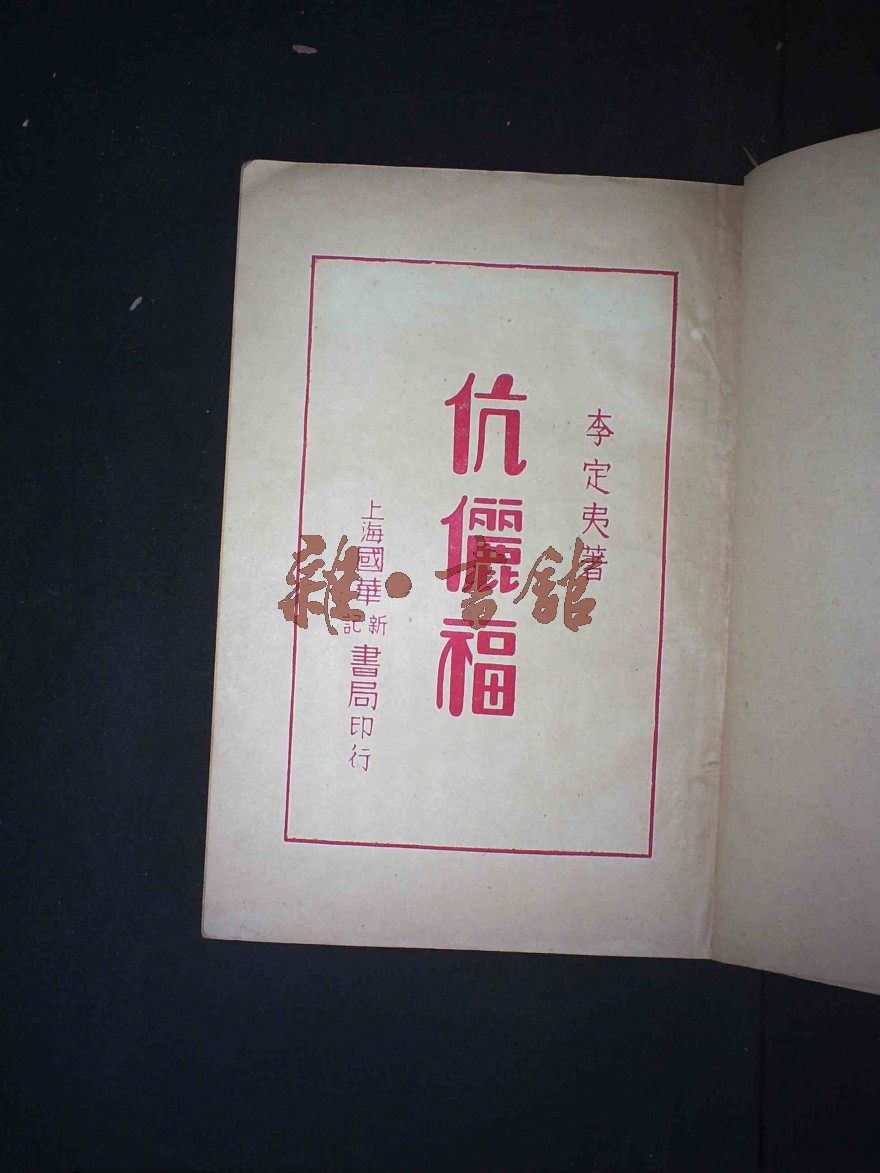 李定夷著
伉儷福
上海國華新記書局印行
雜·書館